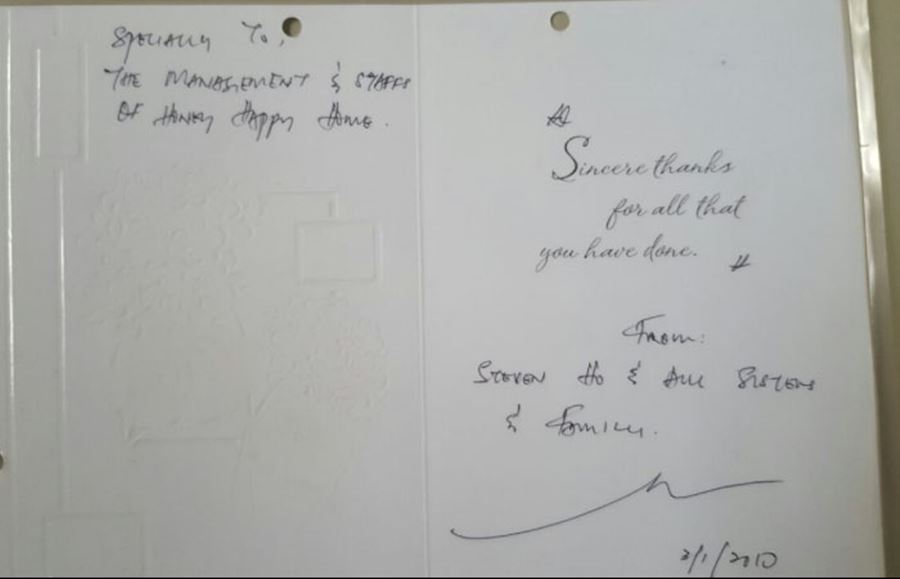 Specially To,
THE MANAGEMENT & STAFFS
OF Honey Happy Home.
Sincere thanks
for all that
you have done.
From:
STEVEN Ho & ALL SISTERS
& Family.
2/1/2010